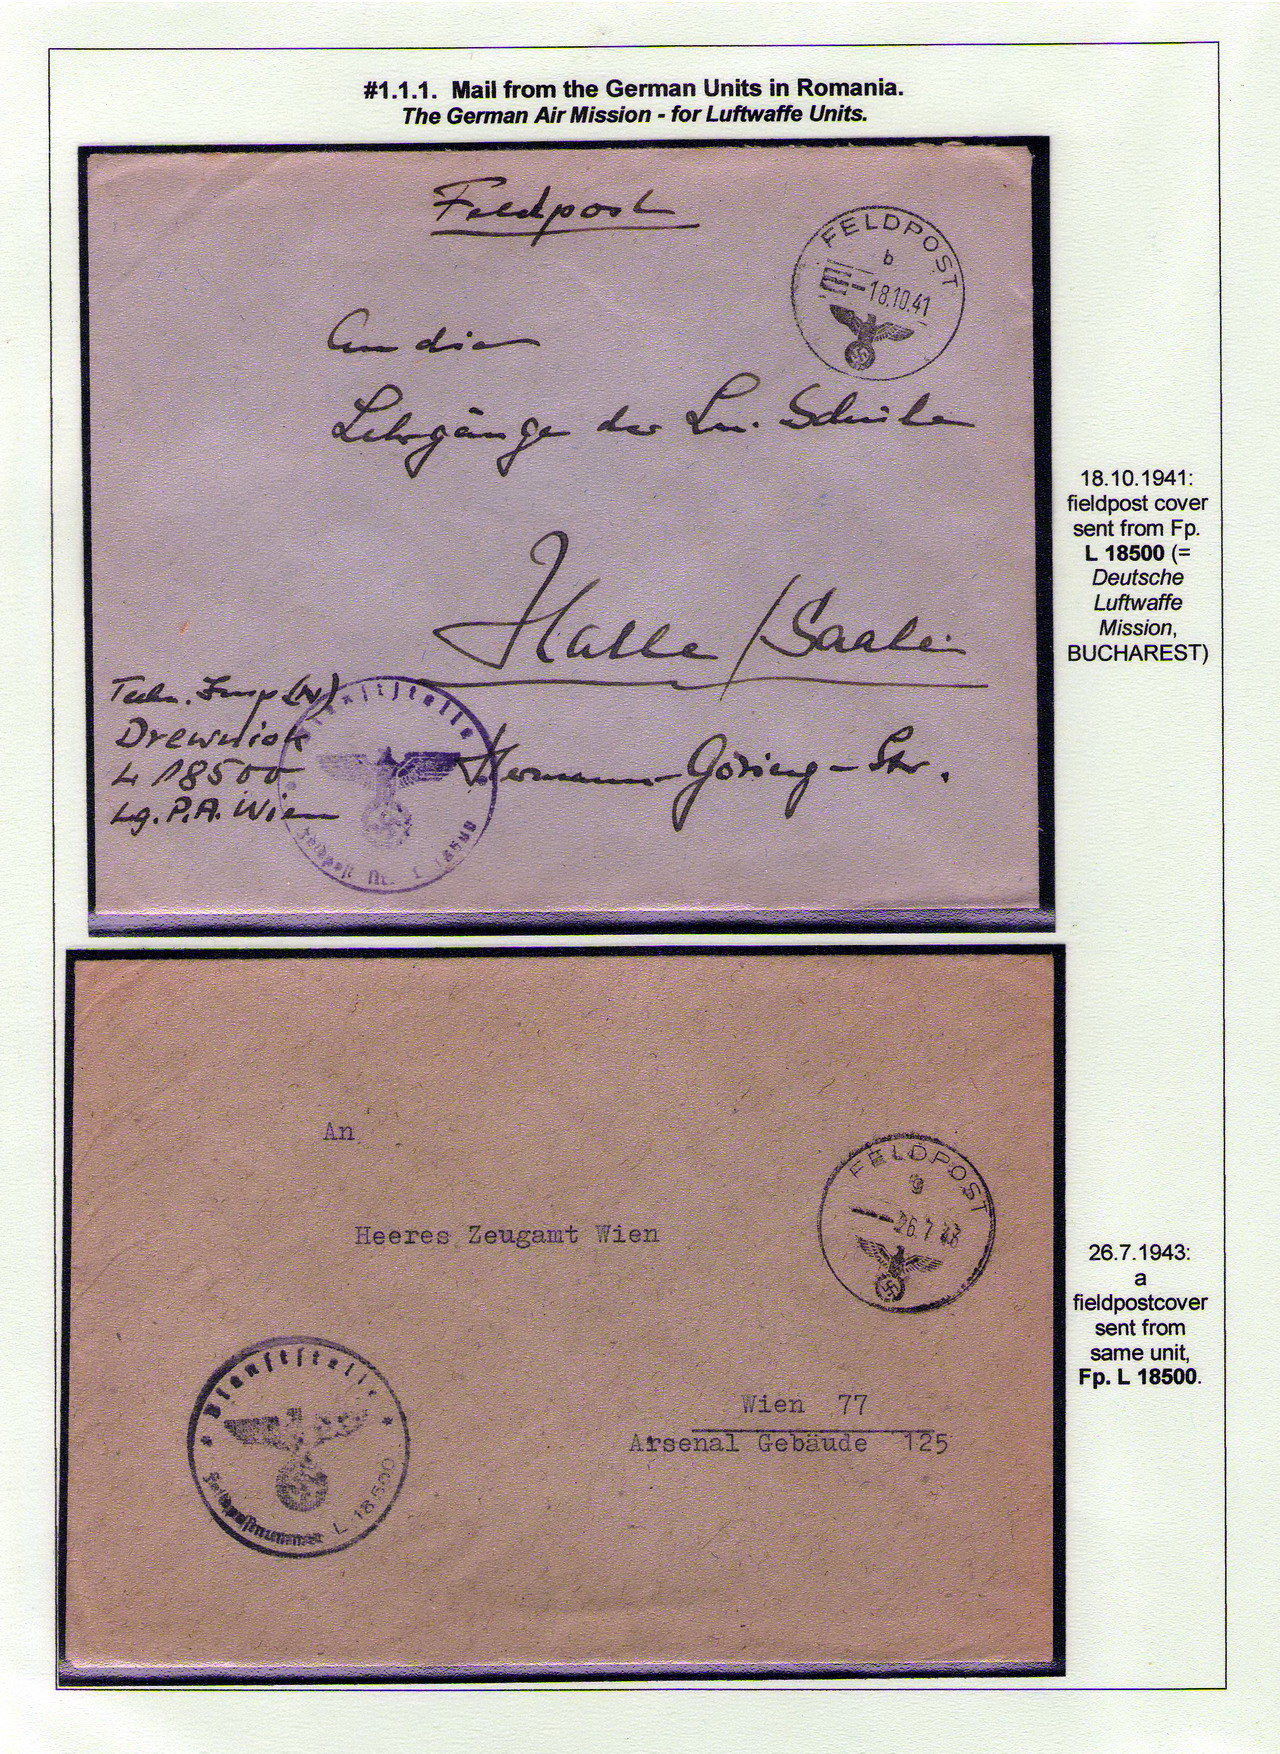 #1.1.1. Mail from the German Units in Romania.
The German Air Mission - for Luftwaffe Units.
Feldpost
FELDPOST
b
18.10.41
An die
Lehrgänge der Ln. Schule
Halle/Saale
Techn. Insp (N)
Drewniok
L 18500
Lg. P.A. Wien
Hermann-Göring-Str.
Dienststelle
Feldpost Nr. L 18500
18.10.1941:
fieldpost cover
sent from Fp.
L 18500 (=
Deutsche
Luftwaffe
Mission,
BUCHAREST)
An
FELDPOST
g
26.7.43
Heeres Zeugamt Wien
Wien 77
Arsenal Gebäude 125
Dienststelle
Feldpostnummer L 18500
26.7.1943:
a
fieldpostcover
sent from
same unit,
Fp. L 18500.